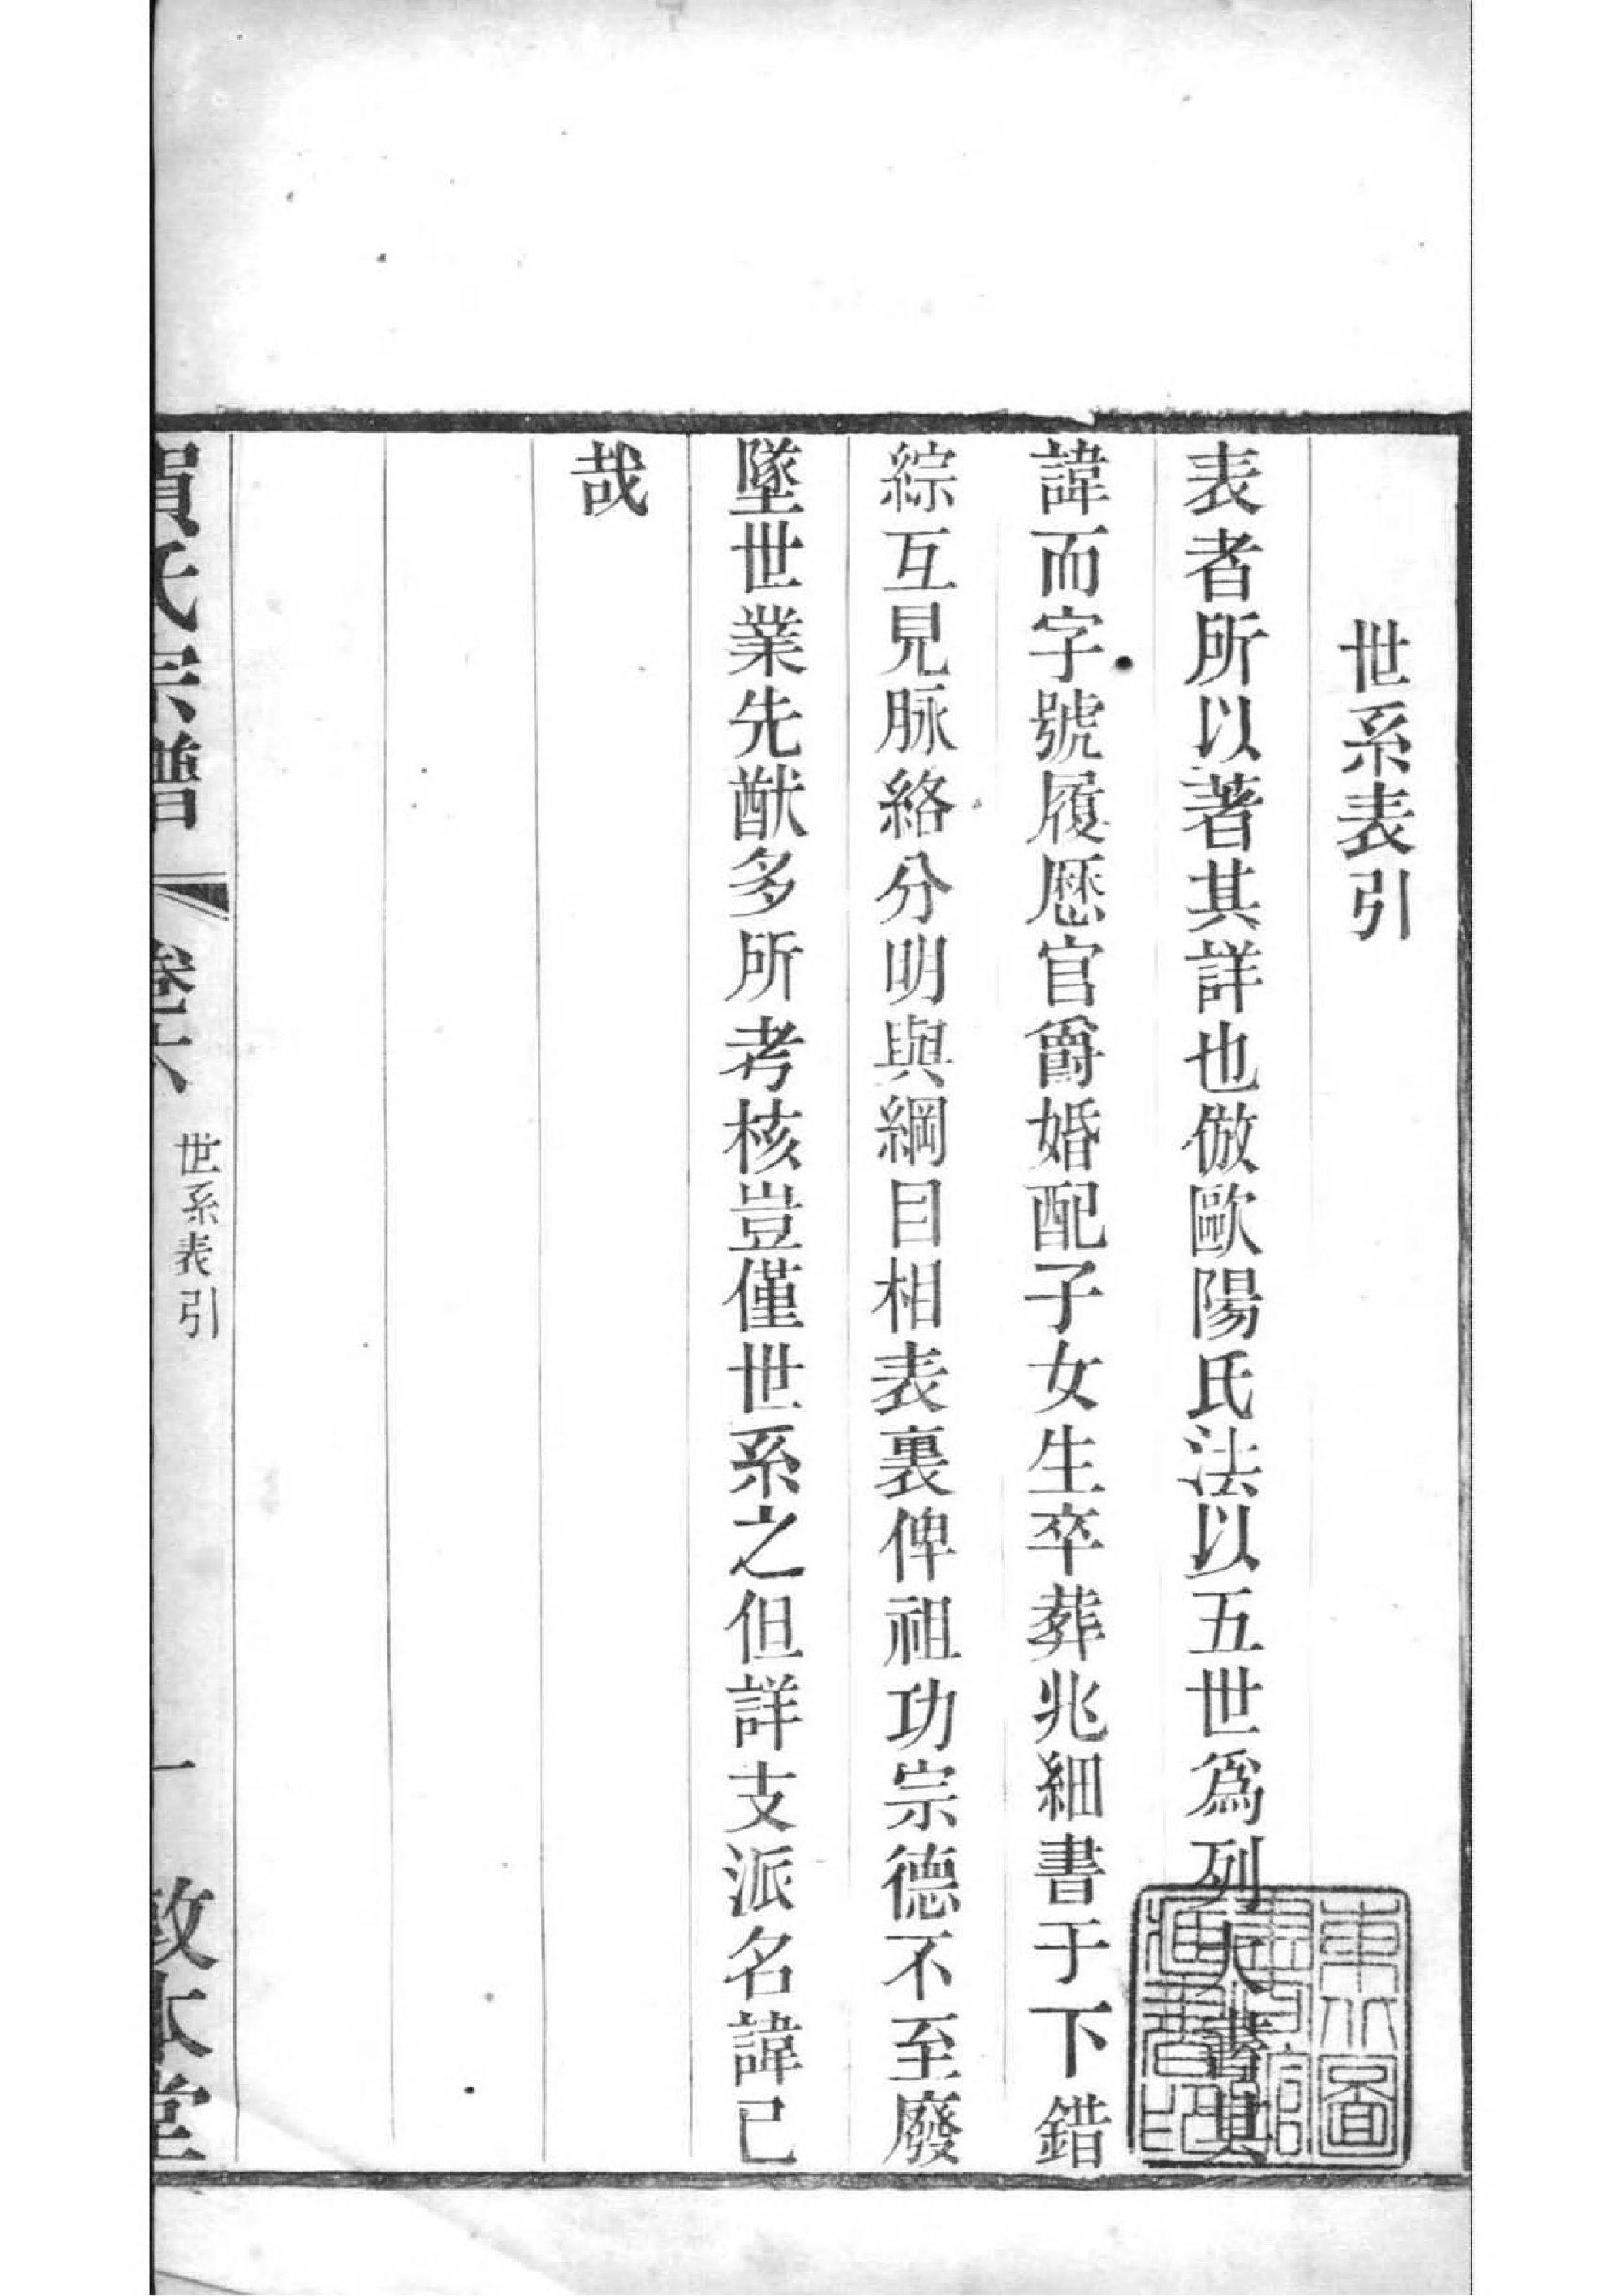 世系表引
表者所以著其詳也倣歐陽氏法以五世爲列大書其
諱而字號履歷官爵婚配子女生卒葬兆細書于下錯
綜互見脉絡分明與綱目相表裏俾祖功宗德不至廢
墜世業先猷多所考核豈僅世系之但詳支派名諱已
哉
氏宗譜
卷六
世系表引
一
敦本堂